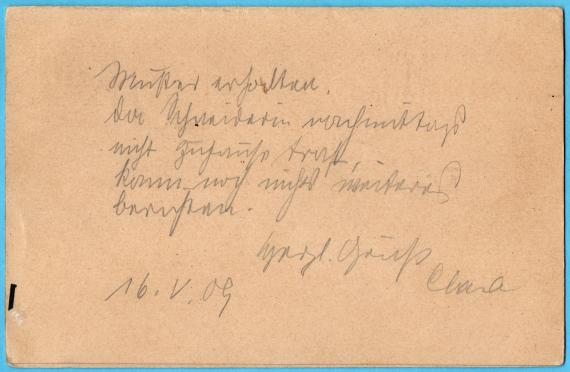 Muster erhalten.
Da Schneiderin nachmittags
nicht zuhause traf,
kann noch nichts weiteres
berichten.
Herzl. Gruß
Clara
16. V. 09